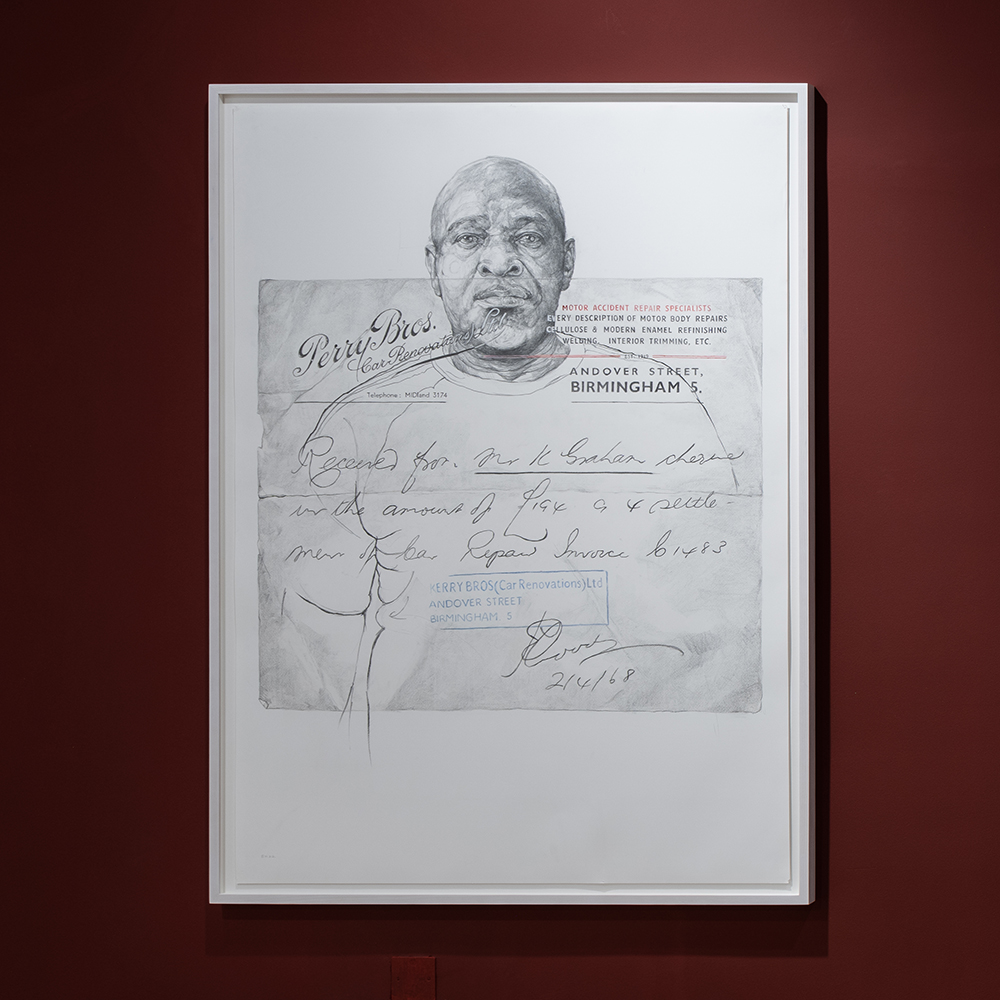 Perry Bros.
Car Renovations Ltd
Telephone: MIDland 3174
MOTOR ACCIDENT REPAIR SPECIALISTS
EVERY DESCRIPTION OF MOTOR BODY REPAIRS
CELLULOSE & MODERN ENAMEL REFINISHING
WELDING, INTERIOR TRIMMING, ETC.
ANDOVER STREET,
BIRMINGHAM 5.
Received from Mr K Graham cheque
in the amount of £194 settle-
ment of Car Repair Invoice 61483
KERRY BROS(Car Renovations)Ltd
ANDOVER STREET
BIRMINGHAM 5
2/4/68